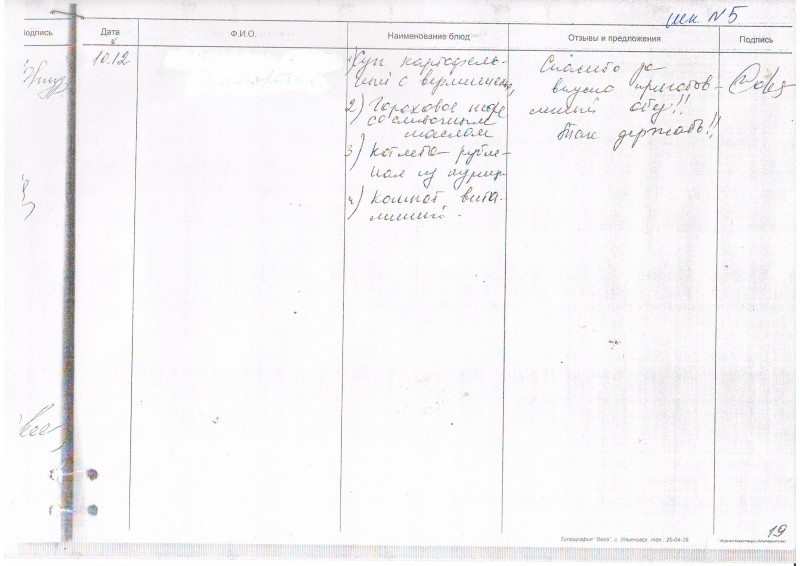 шк N 5
Подпись
Дата
Ф.И.О.
Наименование блюд
Отзывы и предложения
Подпись
10.12
1) Суп картофель-
ный с вермишелью,
2) Гороховое пюре
со сливочным
маслом
3) Котлета рубле-
ная из куриц
4) Компот, вита-
минный.
Спасибо за
вкусно приготов-
ленный обед!!
Так держать!!
Типография "Вега", г. Ульяновск, тел.: 25-04-39
19